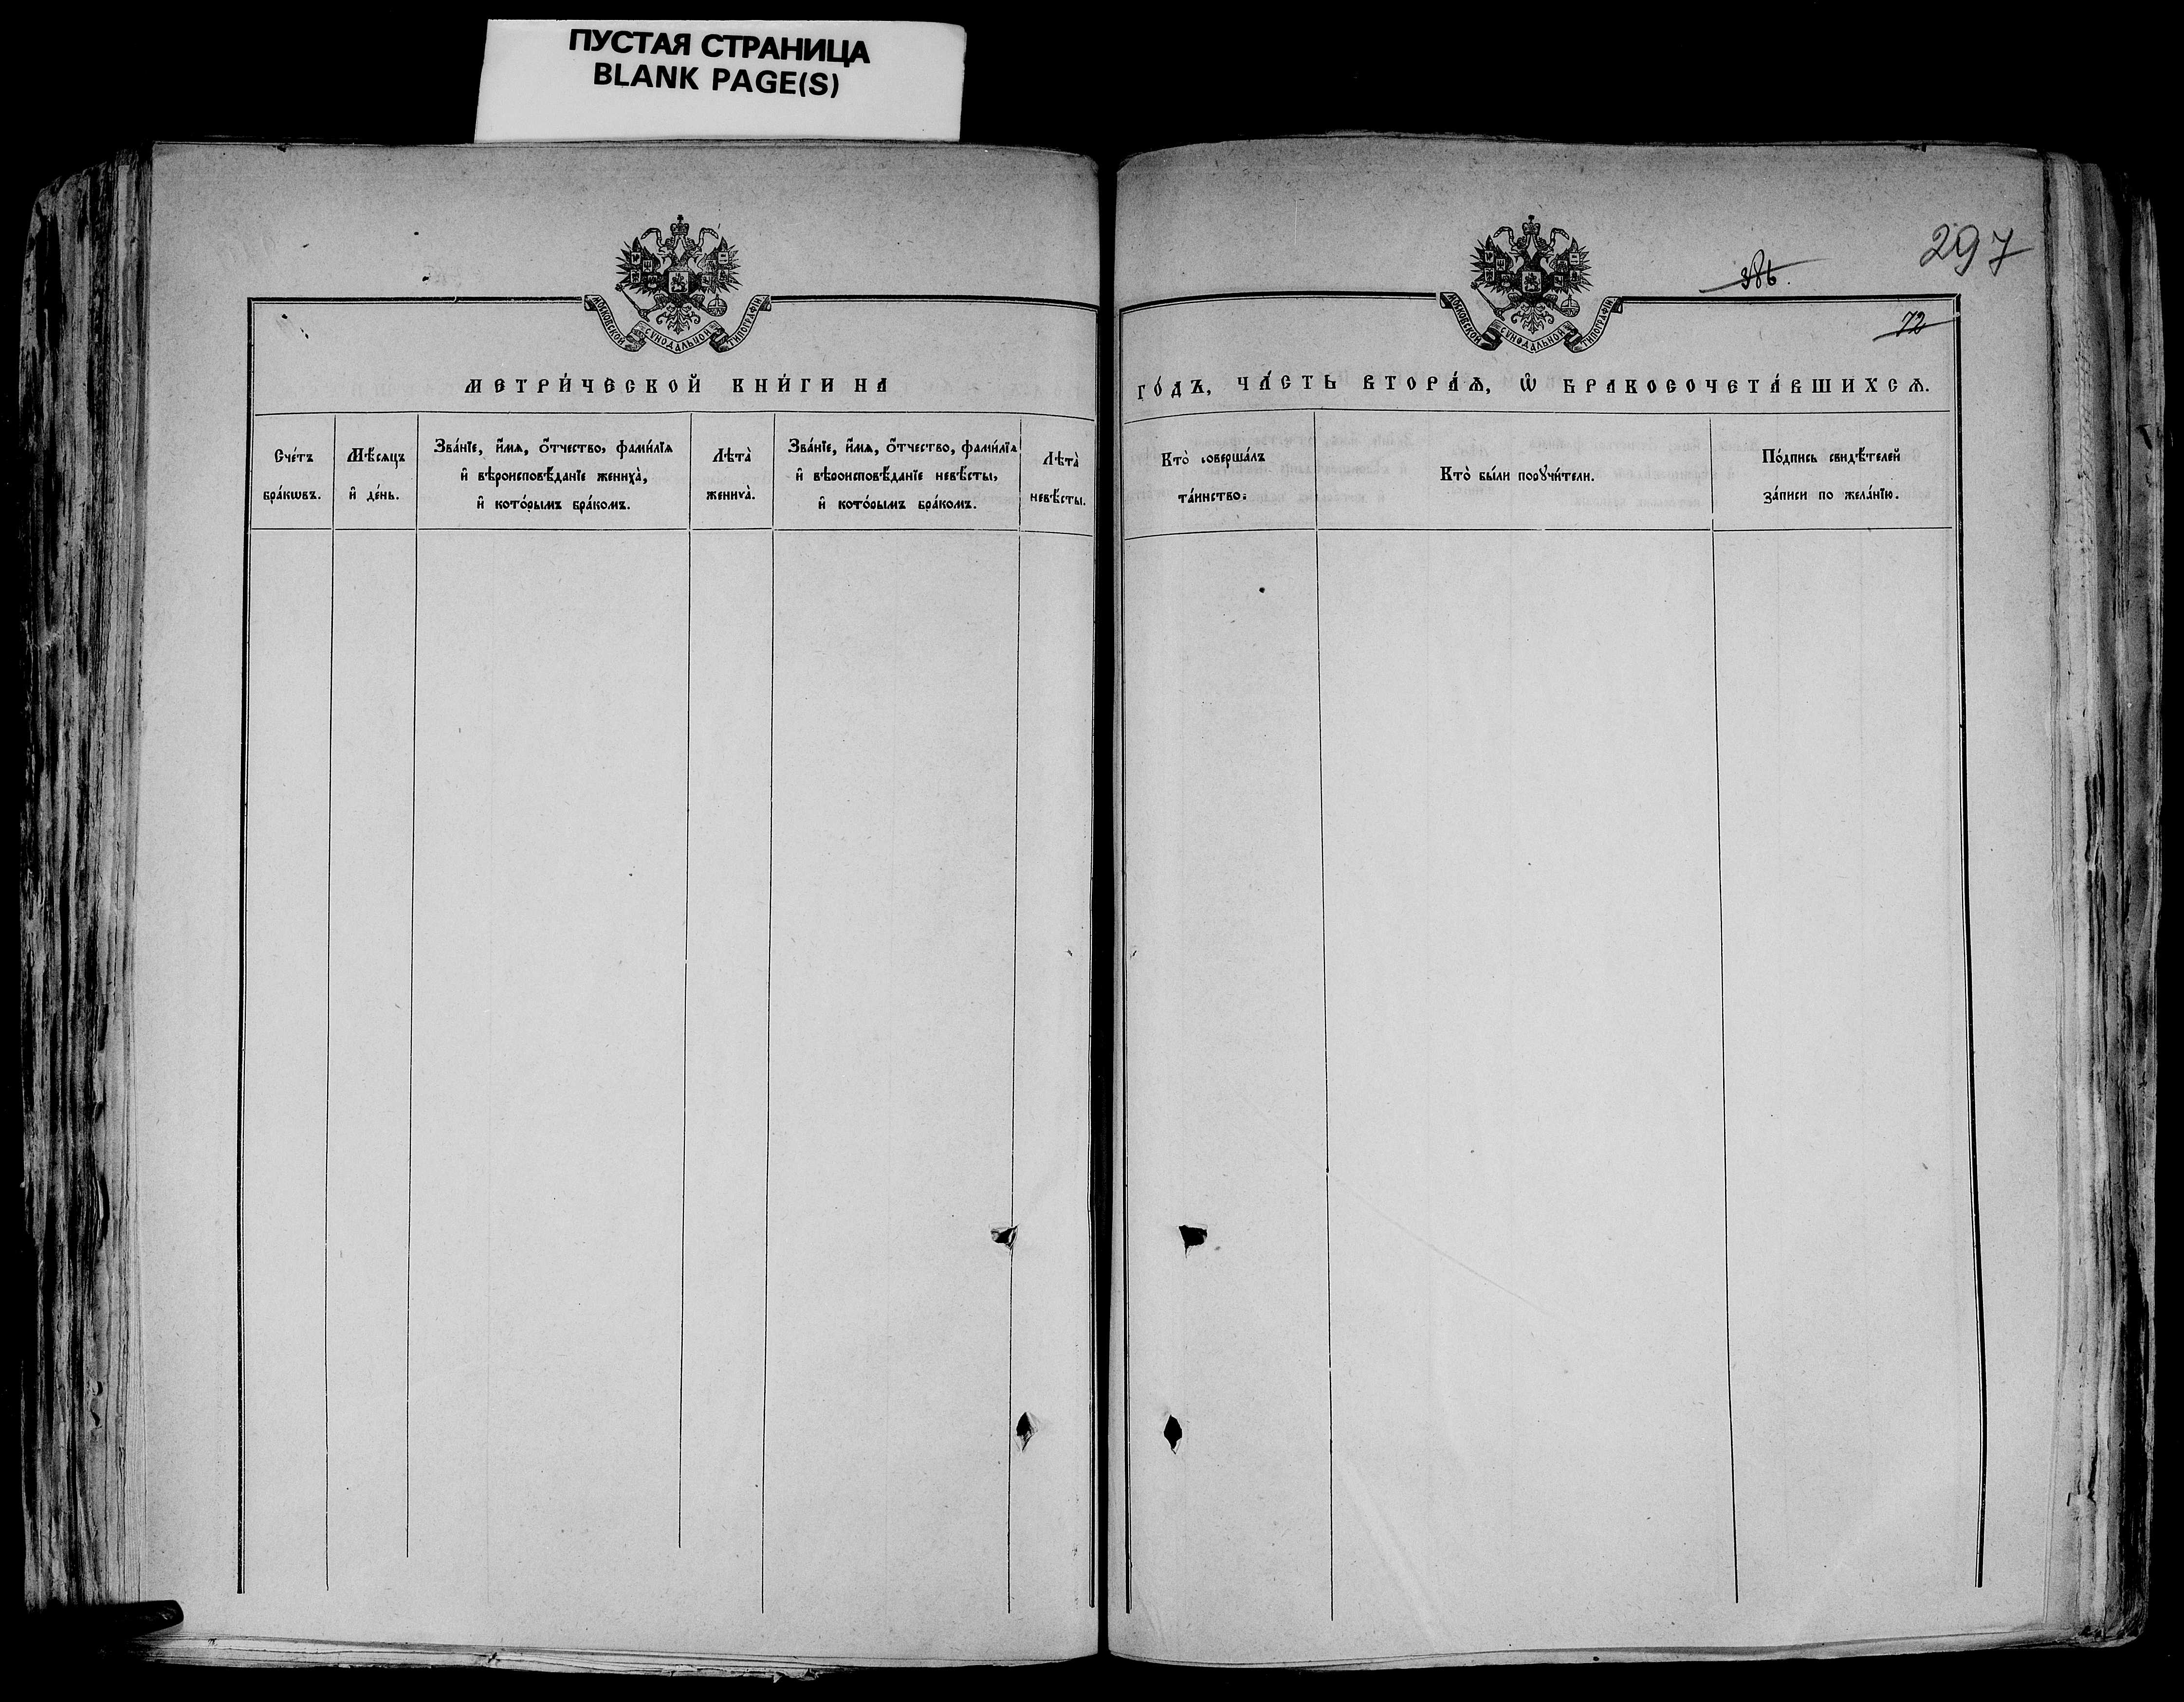 ПУСТАЯ СТРАНИЦА
BLANK PAGE(S)
МОСКОВСКОЙ СУНОДАЛЬНОЙ ТИПОГРАФІИ
МЕТРИ́ЧЕСКОЙ КНИ́ГИ НА
Сче́тъ
бра́кѡвъ.
Мѣ́сѧцъ
и҆ де́нь.
Зва́нїе, и҆́мѧ, ѻ҆́тчество, фами́лїѧ
и҆ вѣроисповѣ́данїе жениха̀,
и҆ кото́рымъ бра́комъ.
Лѣта̀
жениха̀.
Зва́нїе, и҆́мѧ, ѻ҆́тчество, фами́лїѧ
и҆ вѣроисповѣ́данїе невѣ́сты,
и҆ кото́рымъ бра́комъ.
Лѣта̀
невѣ́сты.
297
386.
МОСКОВСКОЙ СУНОДАЛЬНОЙ ТИПОГРАФІИ
72
ГО́ДЪ, ЧА́СТЬ ВТОРА́Ѧ, Ѡ҆ БРАКОСОЧЕТА́ВШИХСѦ.
Кто̀ соверша́лъ
та́инство.
Кто̀ бы́ли порꙋчи́тели.
По́дпись свидѣ́телей
за́писи по жела́нїю.